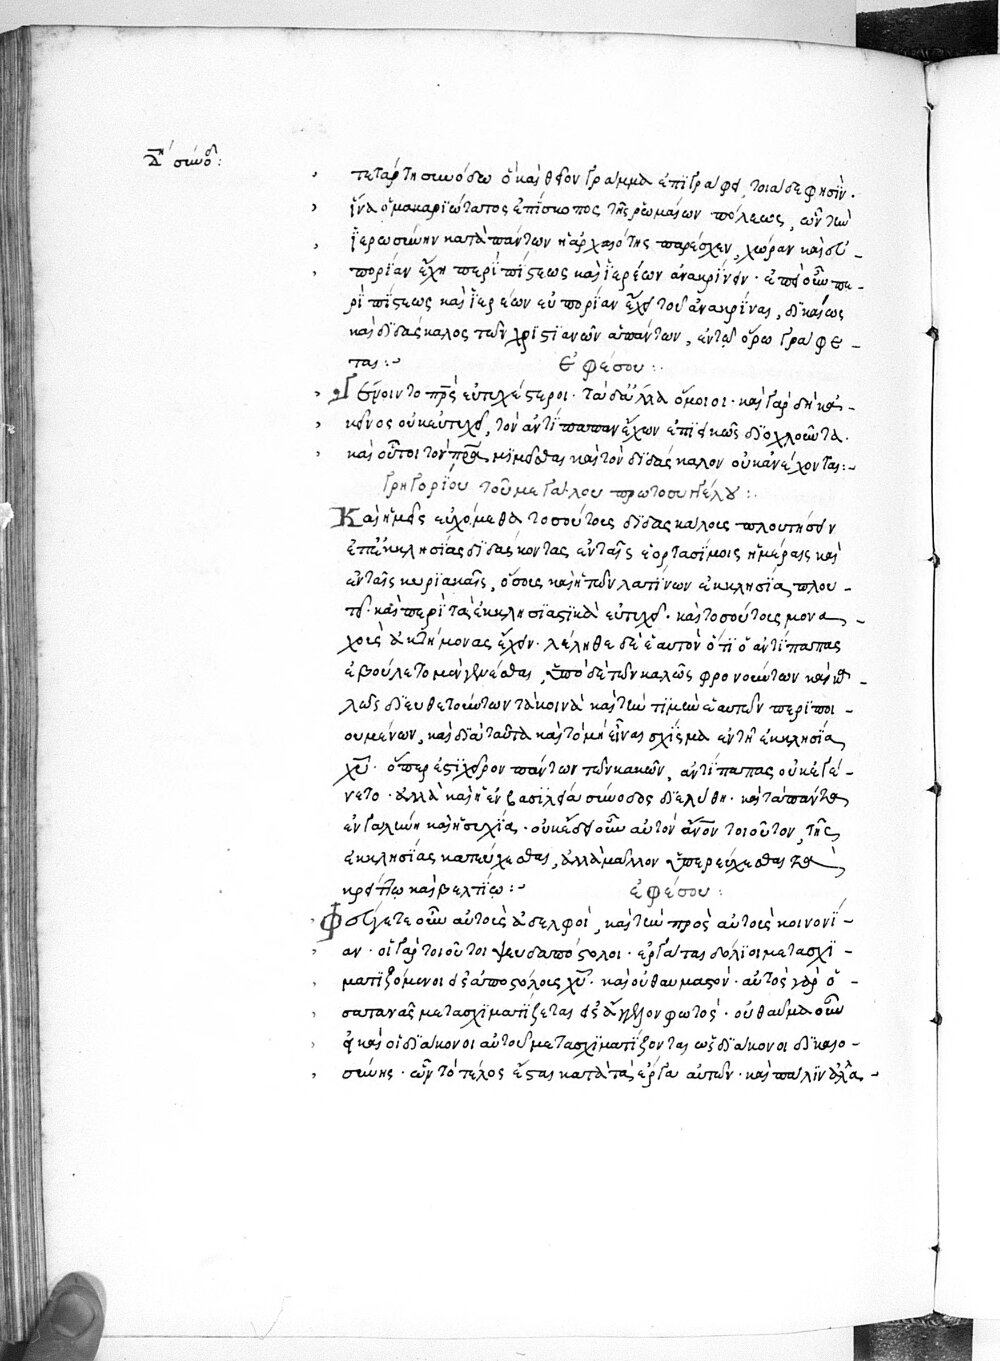 Δ΄η σύνοδ:
τετάρτη συνόδω ὁ καὶ θεῖον γράμμα ἐπιγράφει, τοιάδε φησίν·
ἵνα ὁ μακαριώτατος ἐπίσκοπος τῆς ῥωμαίων πόλεως, ὧ τὴν
ἱερωσύνην κατὰ πάντων ἡ ἀρχαιότης παρέσχεν, χώραν καὶ εὐ-
πορίαν ἔχη περὶ πίστεως καὶ ἱερέων ἀνακρίνειν· ἐπεὶ οὖν πε-
ρὶ πίστεως καὶ ἱερέων εὐπορίαν ἔχει τοῦ ἀνακρίναι, δικαίως
καὶ διδάσκαλος τῶν χριστιανῶν ἁπάντων, ἐν τῶ ὅρω γράφε-
ται:- Ἐφέσου:
Γένοιντο πρὸς εὐτυχέστεροι· τὰ δ' ἄλλα ὅμοιοι· καὶ γὰρ δὴ κἀ-
κεῖνος οὐκ εὐτυχεῖ, τὸν ἀντίπαπαν ἔχων ἐπιεικῶς διοχλοῦντα·
καὶ οὗτοι τὸν πρα μιμεῖσθαι καὶ τὸν διδάσκαλον οὐκ ἀνέχονται:-
Γρηγορίου τοῦ μεγάλου πρωτοσυγγέλου:
Καὶ ἡμεῖς εὐχόμεθα τοσούτοις διδασκάλοις πλουτήσειν
ἐπ' ἐκκλησίας διδάσκοντας ἐν ταῖς ἑορτασίμοις ἡμέραις καὶ
ἐν ταῖς κυριακαῖς, ὅσοις καὶ ἡ τῶν λατίνων ἐκκλησία πλου-
τεῖ· καὶ περὶ τὰ ἐκκλησιαστικὰ εὐτυχεῖ· καὶ τοσούτοις μονα-
χοῖς ἀκτήμονας ἔχειν· λέληθε δὲ ἑαυτὸν ὅτι ὁ ἀντίπαπας
ἐβούλετο μὲν γενέσθαι, ὑπὸ δὲ τῶν καλῶς φρονούντων καὶ
καλῶς διευθετούντων τὰ κοινὰ καὶ τὴν τιμὴν ἑαυτῶν περιποι-
ουμένων, καὶ διὰ ταῦτα καὶ τὸ μὴ εἶναι σχίσμα ἐν τῆ ἐκκλησία
χῦ· ὅπερ ἐστὶ χεῖρον πάντων τῶν κακῶν, ἀντίπαπας οὐκ ἐγέ-
νετο· ἀλλὰ καὶ ἡ ἐν βασιλεία σύνοδος διελύθη· καὶ τὰ πάντα
ἐν γαλήνη καὶ ἡσυχία· οὐκ ἔδει οὖν αὐτὸν ἄνον τοιοῦτον, τῆς
ἐκκλησίας κατεύχεσθαι, ἀλλὰ μᾶλλον ὑπερεύχεσθαι τὰ
κρείττω καὶ βελτίω:- ἐφέσου:
Φεύγετε οὖν αὐτοὺς ἀδελφοὶ, καὶ τὴν πρὸς αὐτοὺς κοινωνί-
αν· οἱ γὰρ τοιοῦτοι ψευδαπόστολοι· ἐργάται δόλιοι μετασχη-
ματιζόμενοι εἰς ἀποστόλους χῦ· καὶ οὐ θαυμαστόν· αὐτὸς γὰρ ὁ
σατανᾶς μετασχηματίζεται εἰς ἄγγελον φωτός· οὐ θαῦμα οὖν
εἰ καὶ οἱ διάκονοι αὐτοῦ μετασχηματίζονται ὡς διάκονοι δικαιο-
σύνης· ὧν τὸ τέλος ἔσται κατὰ τὰ ἔργα αὐτῶν· καὶ πάλιν ἀλλα-